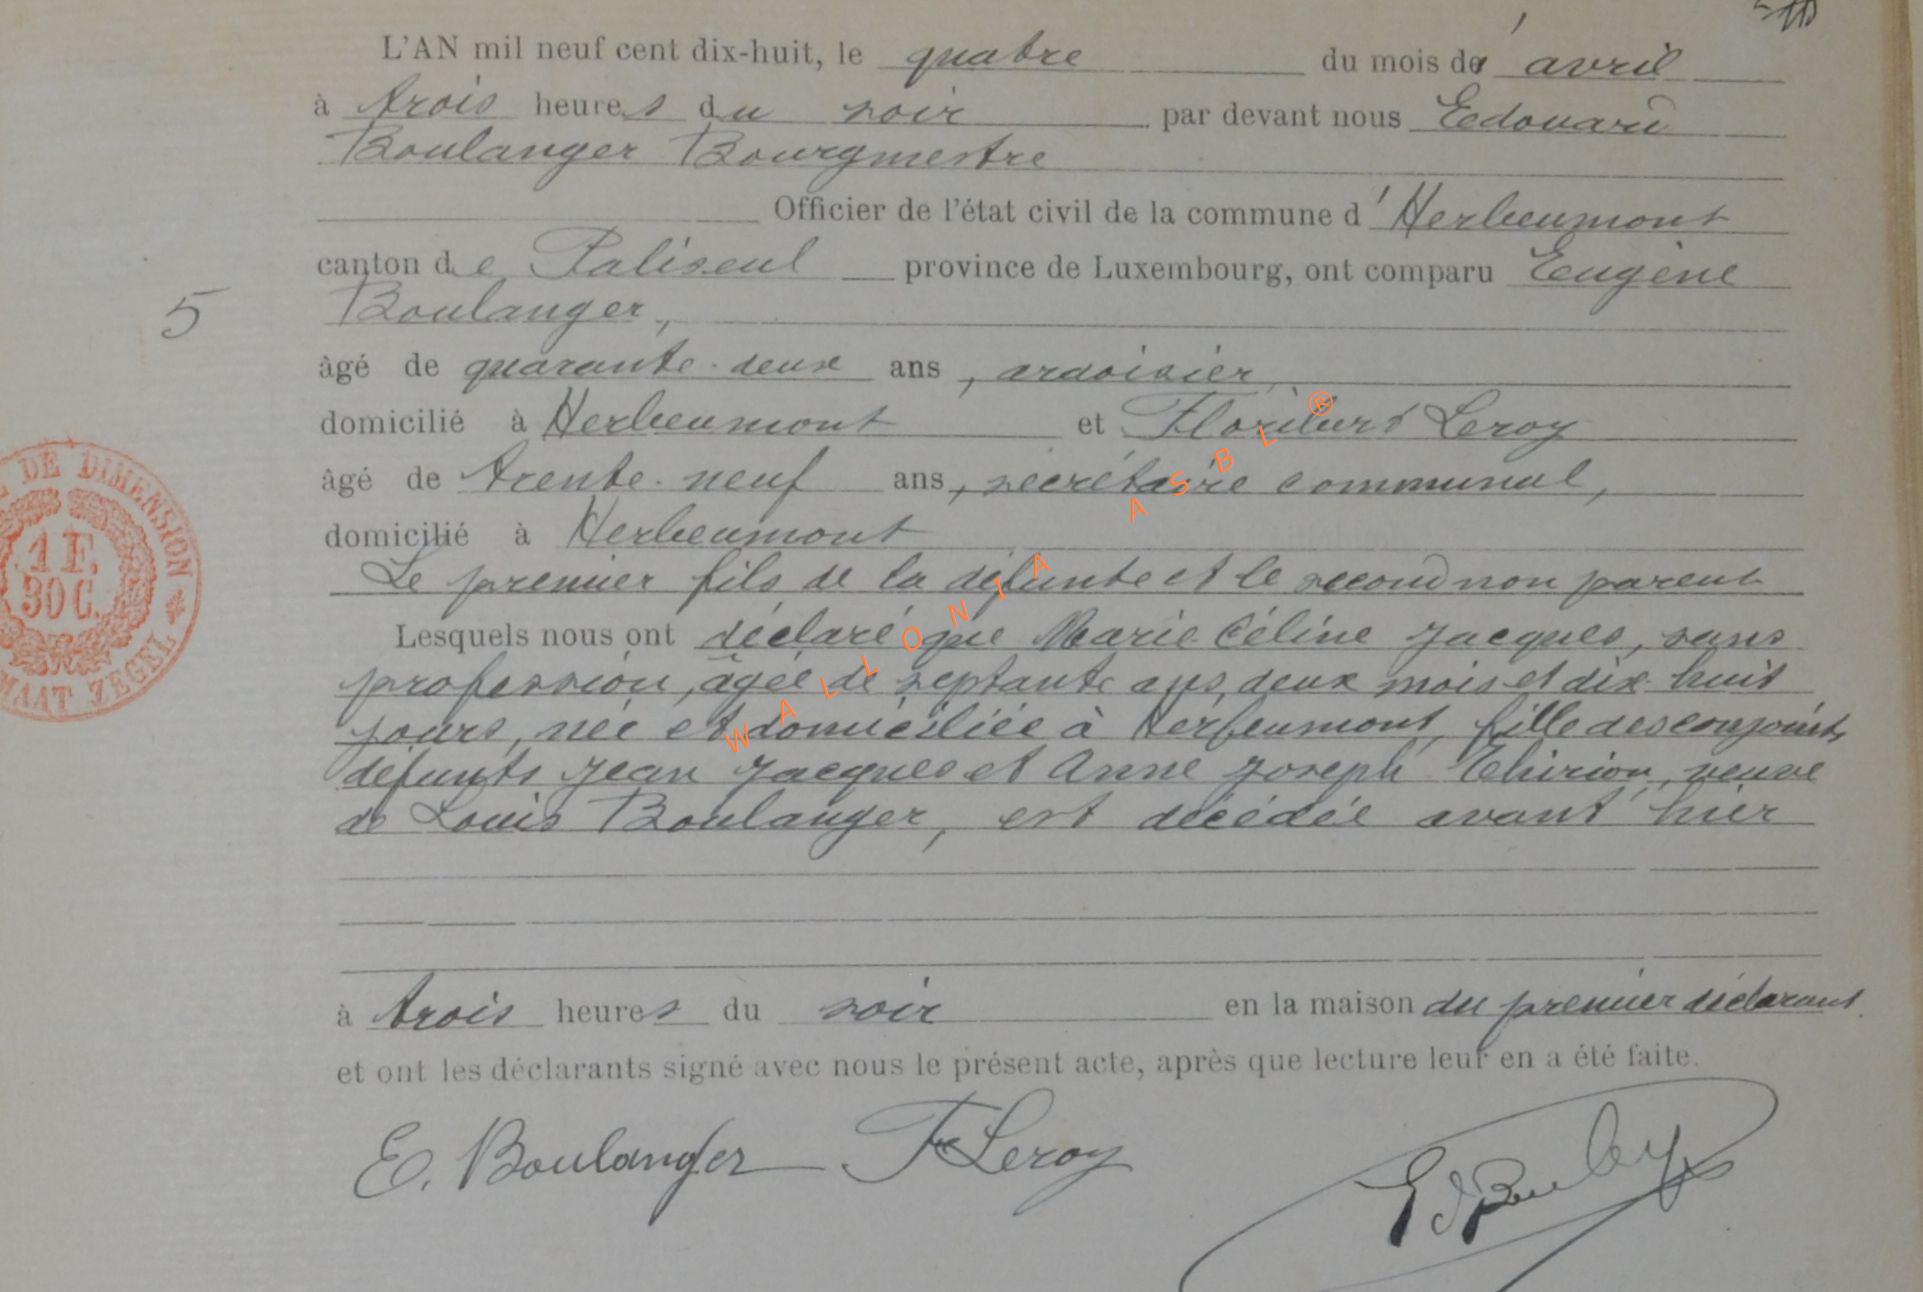 L'AN mil neuf cent dix-huit, le quatre du mois d' avril
à trois heures du soir par devant nous Edouard
Boulanger Bourgmestre
Officier de l'état civil de la commune d'Herbeumont
canton de Paliseul province de Luxembourg, ont comparu Eugène
Boulanger,
5
âgé de quarante-deux ans, ardoisier,
domicilié à Herbeumont et Leroy
âgé de trente-neuf ans, secrétaire communal,
domicilié à Herbeumont
Le premier fils de la défunte et le second non parent
Lesquels nous ont déclaré que Marie Céline Jacques, sans
profession, âgée de septante ans, deux mois et dix-huit
jours, née et domiciliée à Herbeumont, fille des conjoints
défunts Jean Jacques et Anne Joseph Thirion, veuve
de Louis Boulanger, est décédée avant hier
à trois heures du soir en la maison du premier déclarant.
et ont les déclarants signé avec nous le présent acte, après que lecture leur en a été faite.
E. Boulanger F Leroy
DE DIMENSION
1 F.
30 C.
MAAT ZEGEL
WALLONIA ASBL ®